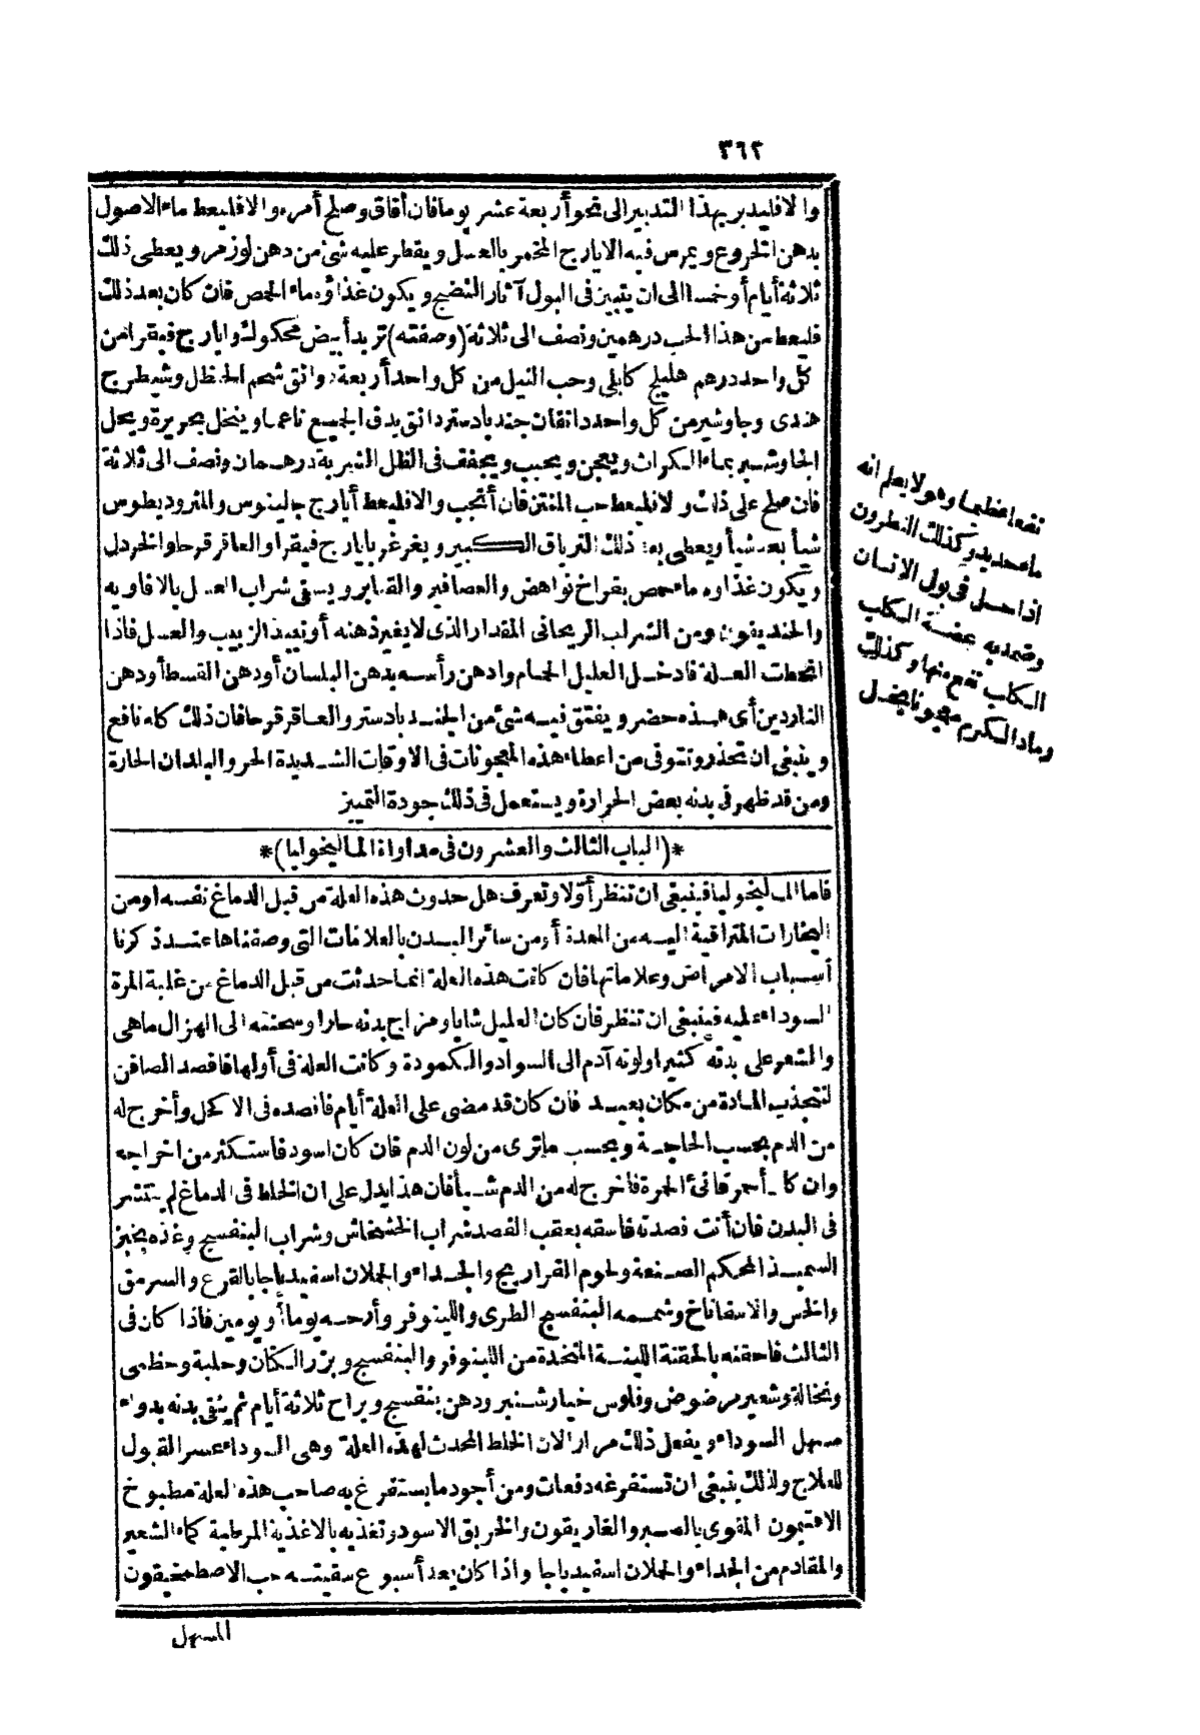 ٣٦٢
والا فليدبر بهذا التدبير الى نحو أربعة عشر يوما فان أفاق وصلح أمره والا فليعط ماء الاصول
بدهن الخروع ويمرس فيه الايارج المخمر بالعسل ويقطر عليه شئ من دهن لوز مر ويعطى ذلك
ثلاثة أيام أو خمسا الى ان يتبين فى البول آثار النضج ويكون غذاؤه ماء الحمص فان كان بعد ذلك
فليعط من هذا الحب درهمين ونصف الى ثلاثة (وصفته) تربد أبيض محكوك وايارج فيقرا من
كل واحد درهم هليلج كابلى وحب النيل من كل واحد أربعة دوانق شحم الحنظل وشيطرج
هندى وجاوشير من كل واحد دانقان جندبادستر دانق يدق الجميع ناعما وينخل بحريرة ويحل
الجاوشير بماء الكراث ويعجن ويحبب ويجفف فى الظل الشربة درهمان ونصف الى ثلاثة
فان صلح على ذلك والا فليعط حب المنتن فان أنجب والا فليعط أيارج جالينوس والمثروديطوس
شيأ بعد شيأ ويعطى بعد ذلك الترياق الكبير ويغرغر بايارج فيقرا والعاقرقرحا والخردل
ويكون غذاوه ماء حمص بفراخ نواهض والعصافير والقنابر ويسقى شراب العسل بالافاويه
والخنديقون ومن الشراب الريحانى المقدار الذى لا يغير ذهنه أو نبيذ الزبيب والعسل فاذا
انحطت العلة فادخل العليل الحمام وادهن رأسه بدهن البلسان أو دهن القسط أو دهن
الناردين أى هذه حضر ويفتق فيه شئ من الجندبادستر والعاقرقرحا فان ذلك كله نافع
وينبغى ان تحذر وتتوقى من اعطاء هذه المعجونات فى الاوقات الشديدة الحر والبلدان الحارة
ومن قد ظهر فى بدنه بعض الحرارة ويستعمل فى ذلك جودة التمييز
*(الباب الثالث والعشرون فى مداواة الماليخوليا)*
فاما الماليخوليا فينبغى ان تنظر أولا وتعرف هل حدوث هذه العلة من قبل الدماغ نفسه او من
البخارات المتراقية اليه من المعدة أو من سائر البدن بالعلامات التى وصفناها عند ذكرنا
أسباب الامراض وعلاماتها فان كانت هذه العلة انما حدثت من قبل الدماغ من غلبة المرة
السوداء عليه فينبغى ان تنظر فان كان العليل شابا ومزاج بدنه حارا وسحنته الى الهزال ماهى
والشعر على بدنه كثيرا ولونه آدم الى السواد والكمودة وكانت العلة فى أولها فافصد الصافن
لتجذب المادة من مكان بعيد فان كان قد مضى على العلة أيام فافصده فى الاكحل وأخرج له
من الدم بحسب الحاجة وبحسب ماترى من لون الدم فان كان اسود فاستكثر من اخراجه
وان كان أحمر قانئ الحمرة فاخرج له من الدم شيأ فان هذا يدل على ان الخلط فى الدماغ لم ينتشر
فى البدن فان أنت فصدته فاسقه بعقب الفصد شراب الخشخاش وشراب البنفسج وغذه بخبز
السميذ المحكم الصنعة ولحوم الفراريج والجداء والحملان اسفيدباجا بالقرع والسرمق
والخس والاسفاناخ وشممه البنفسج الطرى واللينوفر وأرحه يوما أو يومين فاذا كان فى
الثالث فاحقنه بالحقنة اللينة المتخذة من اللينوفر والبنفسج وبزر الكتان وحلبة وخطمى
ونخالة وشعير مرضوض وفلوس خيارشنبر ودهن بنفسج ويراح ثلاثة أيام ثم ينقى بدنه بدواء
مسهل السوداء ويفعل ذلك مرارا لان الخلط المحدث لهذه العلة وهى السوداء عسر القبول
للعلاج ولذلك ينبغى ان تستفرغه دفعات ومن أجود ما يستفرغ به صاحب هذه العلة مطبوخ
الافتيمون المقوى بالصبر والغاريقون والخربق الاسود وتغذيه بالاغذية المرطبة كماء الشعير
والمقادم من الجداء والحملان اسفيدباجا واذا كان بعد أسبوع سقيته حب الاصطمخيقون
المسهل
نفعا عظيما وهو لا يعلم انه
ماء حديد وكذلك النطرون
اذا حل فى بول الانسان
وضمد به عضة الكلب
الكلب نفع منها وكذلك
رماد الكرم معجونا بخل